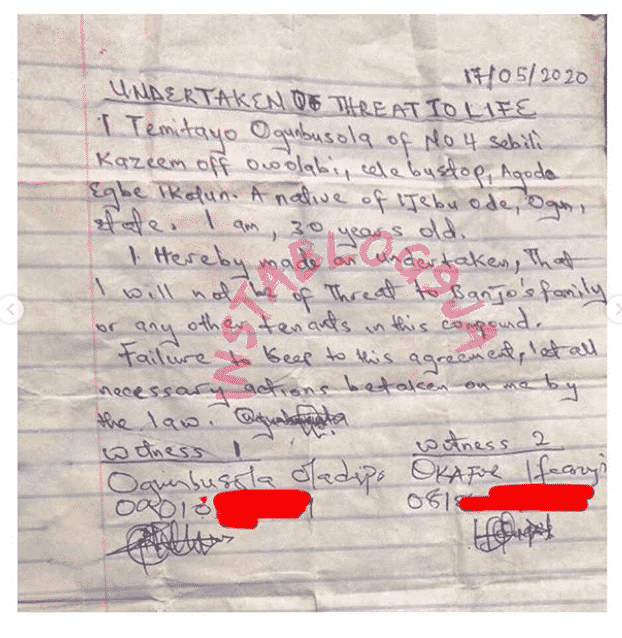 17/05/2020
UNDERTAKEN OF THREAT TO LIFE
I Temitayo Ogunbusola of No 4 Sebili
Kazeem off owolabi, cele bustop, Agodo
Egbe Ikotun. A native of IJebu ode, Ogun,
state. I am, 30 years old.
I Hereby made an undertaken, That
I will not be of Threat to Banjo's family
or any other tenants in this compound.
Failure to keep to this agreement, let all
necessary actions be taken on me by
the law.
witness 1
witness 2
Ogunbusola Oladipo
OKAFOR Ifeanyi
09010
1
081
INSTABLOG9JA